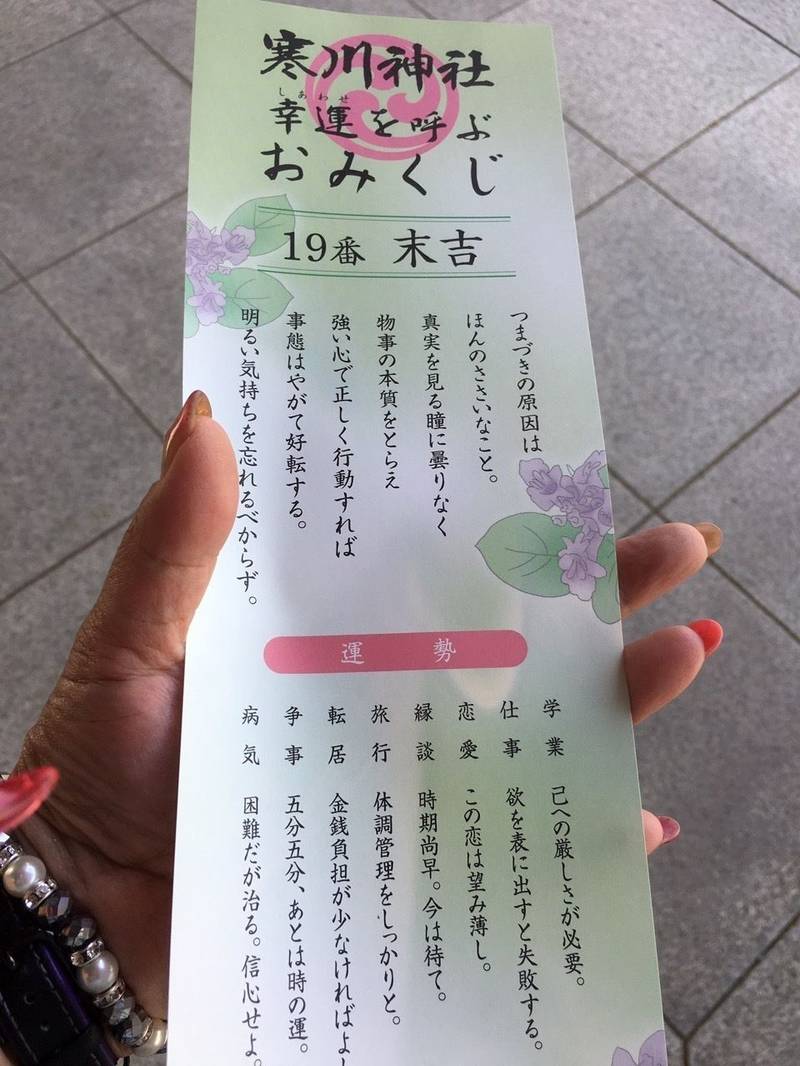 寒川神社
しあわせ
幸運を呼ぶ
おみくじ
19番 末吉
つまづきの原因は
ほんのささいなこと。
真実を見る瞳に曇りなく
物事の本質をとらえ
強い心で正しく行動すれば
事態はやがて好転する。
明るい気持ちを忘れるべからず。
運勢
学業 己への厳しさが必要。
仕事 欲を表に出すと失敗する。
恋愛 この恋は望み薄し。
縁談 時期尚早。今は待て。
旅行 体調管理をしっかりと。
転居 金銭負担が少なければよし
争事 五分五分、あとは時の運。
病気 困難だが治る。信心せよ。